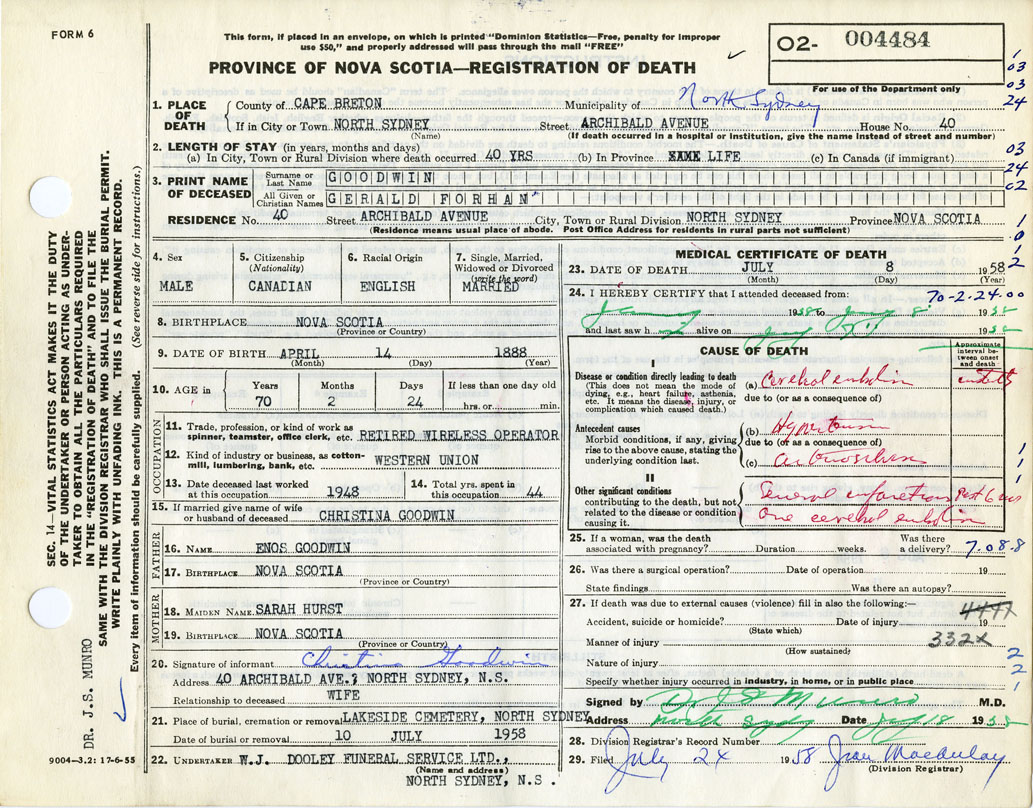 FORM 6
This form, if placed in an envelope, on which is printed "Dominion Statistics—Free, penalty for improper
use $50," and properly addressed will pass through the mail "FREE"
02- 004484
For use of the Department only
PROVINCE OF NOVA SCOTIA—REGISTRATION OF DEATH
1. PLACE OF DEATH
County of CAPE BRETON Municipality of North Sydney
If in City or Town NORTH SYDNEY Street ARCHIBALD AVENUE House No. 40
(Name) (If death occurred in a hospital or institution, give the name instead of street and number)
2. LENGTH OF STAY (in years, months and days)
(a) In City, Town or Rural Division where death occurred 40 YRS (b) In Province LIFE (c) In Canada (if immigrant)
3. PRINT NAME OF DECEASED
Surname or Last Name GOODWIN
All Given or Christian Names GERALD FORHAN
RESIDENCE No. 40 Street ARCHIBALD AVENUE City, Town or Rural Division NORTH SYDNEY Province NOVA SCOTIA
(Residence means usual place of abode. Post Office Address for residents in rural parts not sufficient)
4. Sex
MALE
5. Citizenship
(Nationality)
CANADIAN
6. Racial Origin
ENGLISH
7. Single, Married,
Widowed or Divorced
(write the word)
MARRIED
8. BIRTHPLACE NOVA SCOTIA
(Province or Country)
9. DATE OF BIRTH APRIL 14 1888
(Month) (Day) (Year)
10. AGE in
Years Months Days If less than one day old
70 2 24 hrs. or min.
OCCUPATION
11. Trade, profession, or kind of work as
spinner, teamster, office clerk, etc. RETIRED WIRELESS OPERATOR
12. Kind of industry or business, as cotton-
mill, lumbering, bank, etc. WESTERN UNION
13. Date deceased last worked
at this occupation 1948
14. Total yrs. spent in
this occupation 44
15. If married give name of wife
or husband of deceased CHRISTINA GOODWIN
FATHER
16. NAME ENOS GOODWIN
17. BIRTHPLACE NOVA SCOTIA
(Province or Country)
MOTHER
18. MAIDEN NAME SARAH HURST
19. BIRTHPLACE NOVA SCOTIA
(Province or Country)
20. Signature of informant Christina Goodwin
Address 40 ARCHIBALD AVE., NORTH SYDNEY, N.S.
Relationship to deceased WIFE
21. Place of burial, cremation or removal LAKESIDE CEMETERY, NORTH SYDNEY
Date of burial or removal 10 JULY 1958
22. UNDERTAKER W.J. DOOLEY FUNERAL SERVICE LTD.,
(Name and address)
NORTH SYDNEY, N.S.
MEDICAL CERTIFICATE OF DEATH
23. DATE OF DEATH JULY 8 1958
(Month) (Day) (Year)
24. I HEREBY CERTIFY that I attended deceased from: 70-2-24.00
1958 to 8 1958
and last saw h alive on 1958
CAUSE OF DEATH
Approximate
interval be-
tween onset
and death
I
Disease or condition directly leading to death
(This does not mean the mode of
dying, e.g., heart failure, asthenia,
etc. It means the disease, injury, or
complication which caused death.)
(a) Cerebral embolism
due to (or as a consequence of)
Antecedent causes
Morbid conditions, if any, giving
rise to the above cause, stating the
underlying condition last.
(b) Hypertension
due to (or as a consequence of)
(c)
II
Other significant conditions
contributing to the death, but not
related to the disease or condition
causing it.
Several infarctions Past 6 
One cerebral embolism
25. If a woman, was the death
associated with pregnancy? Duration weeks. Was there
a delivery? 7.08.8
26. Was there a surgical operation? Date of operation 19
State findings Was there an autopsy?
27. If death was due to external causes (violence) fill in also the following:—
Accident, suicide or homicide? Date of injury 19
(State which)
Manner of injury 332X
(How sustained)
Nature of injury
Specify whether injury occurred in industry, in home, or in public place
Signed by Dr J S Munro M.D.
Address North Sydney Date July 18 1958
28. Division Registrar's Record Number
29. Filed July 24 1958 Jean Macaulay
(Division Registrar)
SEC. 14—VITAL STATISTICS ACT MAKES IT THE DUTY
OF THE UNDERTAKER OR PERSON ACTING AS UNDER-
TAKER TO OBTAIN ALL THE PARTICULARS REQUIRED
IN THE "REGISTRATION OF DEATH" AND TO FILE THE
SAME WITH THE DIVISION REGISTRAR WHO SHALL ISSUE THE BURIAL PERMIT.
WRITE PLAINLY WITH UNFADING INK. THIS IS A PERMANENT RECORD.
Every item of information should be carefully supplied. (See reverse side for instructions.)
DR. J.S. MUNRO
9004—3.2: 17-6-55
1
03
03
24
03
24
02
1
0
1
2
1
1
1
2
2
1